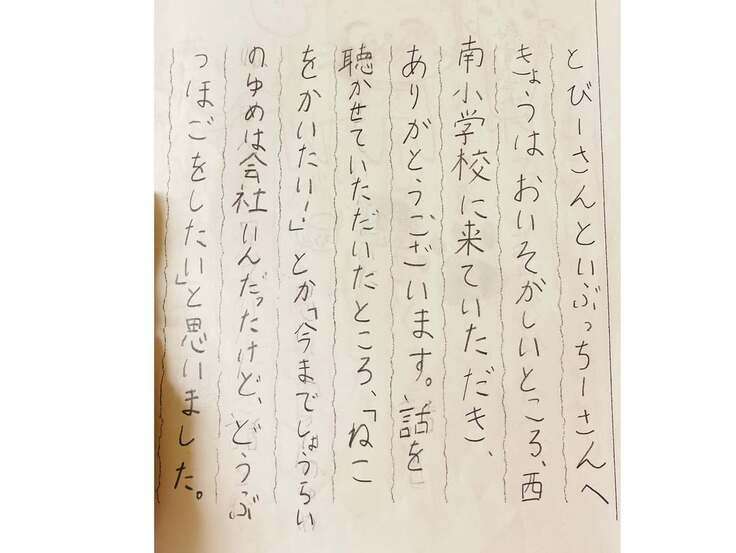 とびーさんといぶっちーさんへ
きょうは おいそがしいところ、西
南小学校に来ていただき、
ありがとうございます。話を
聴かせていただいたところ、「ねこ
をかいたい!」とか「今までしょうらい
のゆめは会社いんだったけど、どうぶ
つほごをしたい」と思いました。